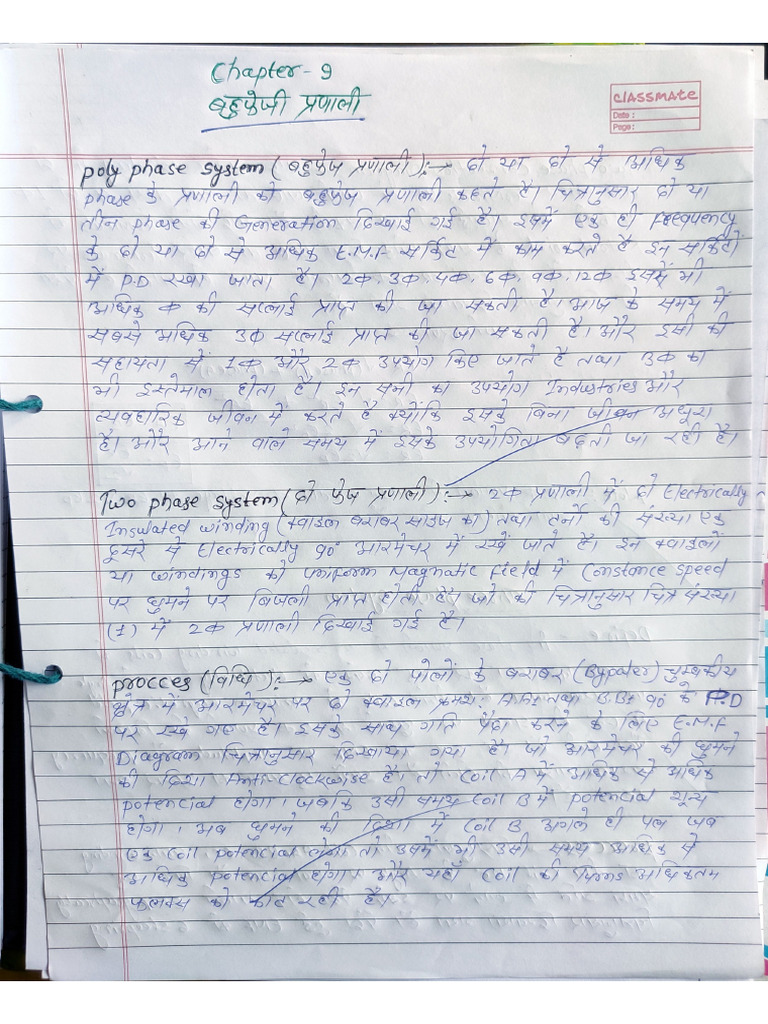 Chapter - 9
बहुफेजी प्रणाली
CLASSMATE
Date :
Page :
poly phase system (बहुफेज प्रणाली) :→ दो या दो से अधिक
phase के प्रणाली को बहुफेज प्रणाली कहते है। चित्रानुसार दो या
तीन phase की Generation दिखाई गई है। इसमें एक ही Frequency
के दो या दो से अधिक E.M.F सर्किट में काम करते है इन सर्किटों
में P.D रखा जाता है। 2Φ, 3Φ, 4Φ, 6Φ, 9Φ, 12Φ इसमें भी
अधिक Φ की सप्लाई प्राप्त की जा सकती है। आज के समय में
सबसे अधिक 3Φ सप्लाई प्राप्त की जा सकती है। और इसी की
सहायता से 1Φ और 2Φ उपयोग किए जाते है तथा 3Φ का
भी इस्तेमाल होता है। इन सभी का उपयोग Industries और
व्यवहारिक जीवन में करते है क्योंकि इसके बिना जीवन अधूरा
है। और आने वाले समय में इसके उपयोगिता बढ़ती जा रही है।
Two phase system (दो फेज प्रणाली) :→ 2Φ प्रणाली में दो Electrically
Insulated winding (क्वाइल बराबर साइज का) तथा टर्नो की संख्या एक
दूसरे से Electrically 90° आरमेचर में रखे जाते है। इन क्वाइलों
या windings को Uniform Magnetic Field में Constance speed
पर घुमने पर बिजली प्राप्त होती है। जो की चित्रानुसार चित्र संख्या
(1) में 2Φ प्रणाली दिखाई गई है।
procces (विधि) :→ एक दो पोलों के बराबर (Bypoler) चुम्बकीय
क्षेत्र में आरमेचर पर दो क्वाइल क्रमश: A.A1 तथा B.B1 90° के P.D
पर रखे गए है। इसके साथ गति पैदा करने के लिए E.M.F
Diagram चित्रानुसार दिखाया गया है। जो आरमेचर की घुमने
की दिशा Anti-Clockwise है। तो Coil A में अधिक से अधिक
potencial होगा। जबकि उसी समय Coil B में potencial शून्य
होगा। अब घुमने की दिशा में Coil B अगले ही पल जब
एक Coil potencial लेगा तो उसमें भी उसी समय अधिक से
अधिक potencial होगा। और यहाँ Coil की अधिकतम
फलक्स को काट रही है।